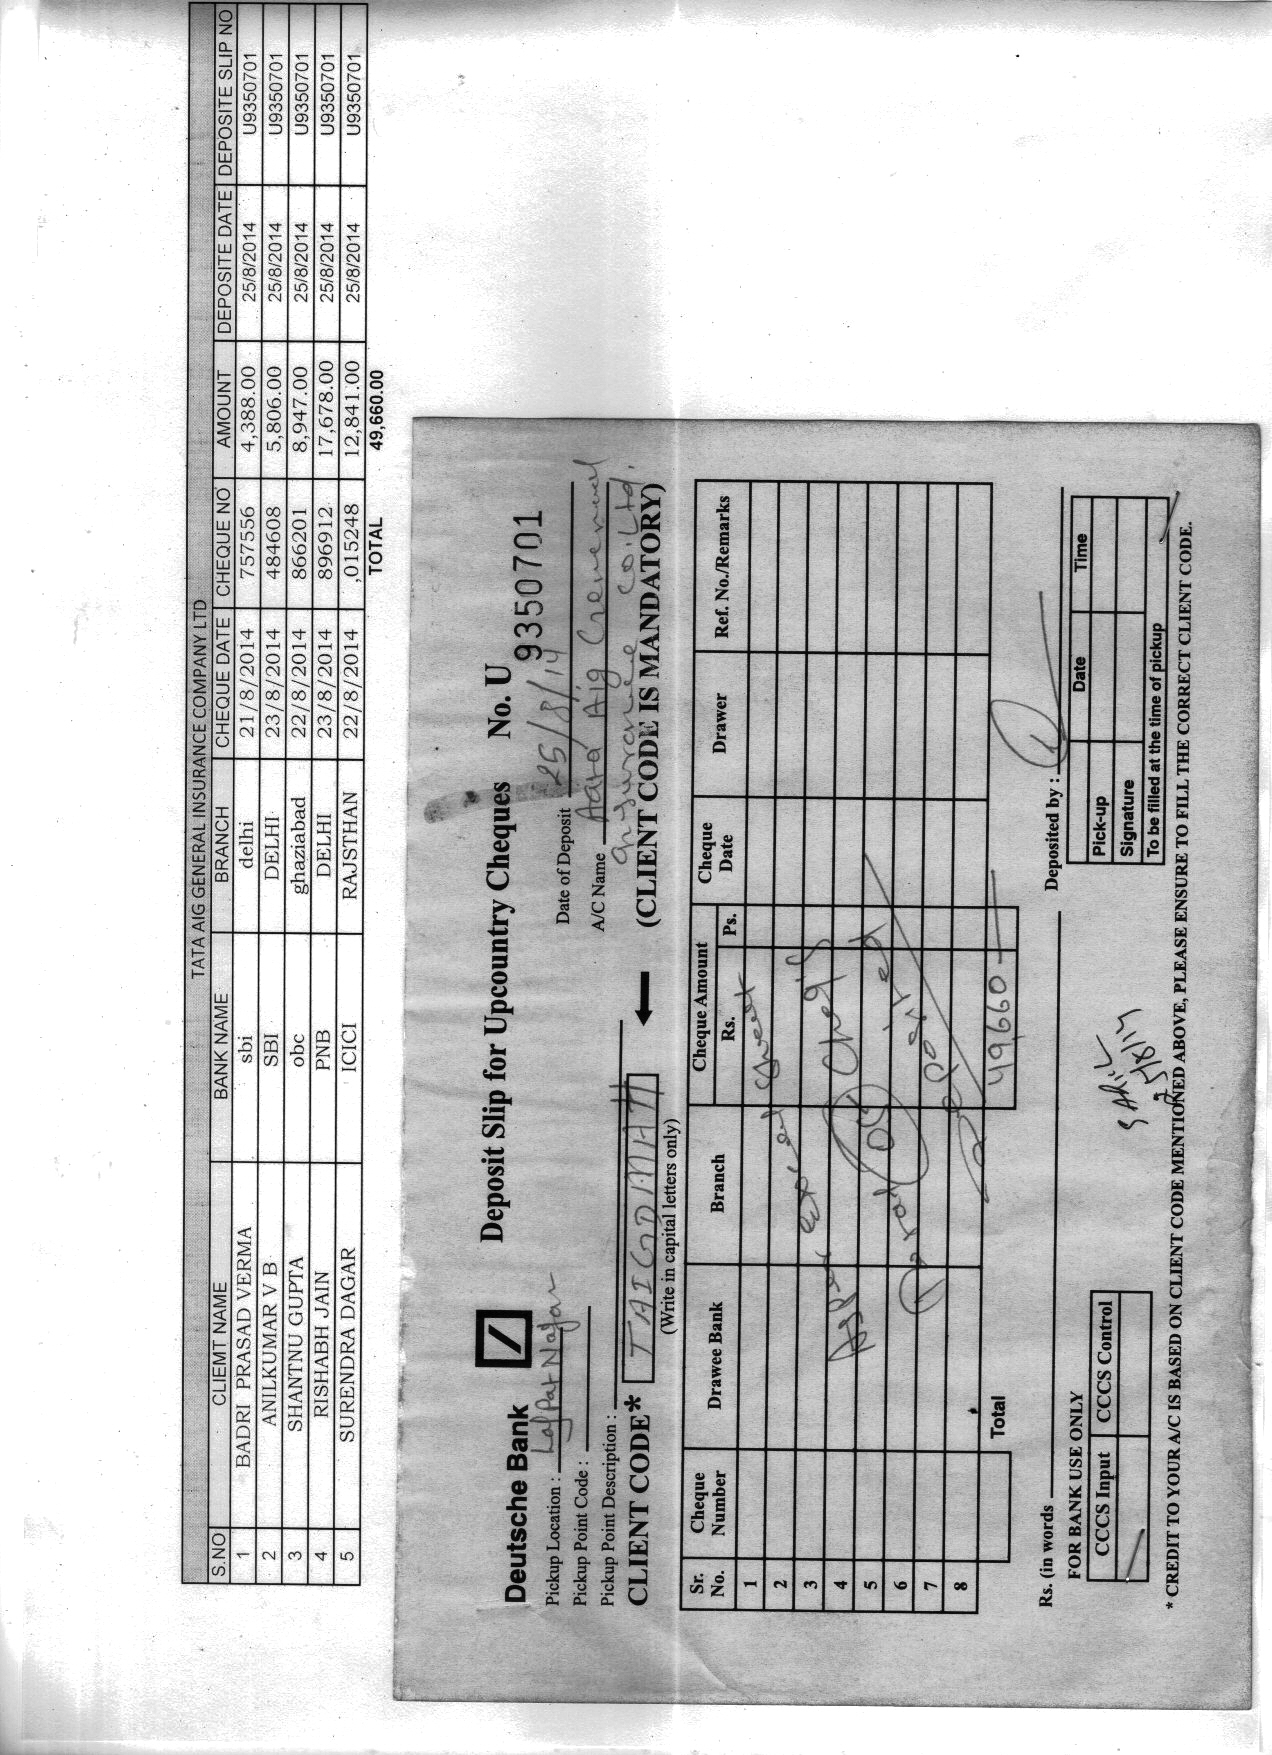 TATA AIG GENERAL INSURANCE COMPANY LTD
S.NO CLIEMT NAME BANK NAME BRANCH CHEQUE DATE CHEQUE NO AMOUNT DEPOSITE DATE DEPOSITE SLIP NO
1 BADRI PRASAD VERMA sbi delhi 21/8/2014 757556 4,388.00 25/8/2014 U9350701
2 ANILKUMAR V B SBI DELHI 23/8/2014 484608 5,806.00 25/8/2014 U9350701
3 SHANTNU GUPTA obc ghaziabad 22/8/2014 866201 8,947.00 25/8/2014 U9350701
4 RISHABH JAIN PNB DELHI 23/8/2014 896912 17,678.00 25/8/2014 U9350701
5 SURENDRA DAGAR ICICI RAJSTHAN 22/8/2014 ,015248 12,841.00 25/8/2014 U9350701
TOTAL 49,660.00
Deutsche Bank Deposit Slip for Upcountry Cheques No. U 9350701
Pickup Location : Lajpat Nagar Date of Deposit 25/8/14
Pickup Point Code : A/C Name Aig General
Pickup Point Description : Insurance Co. Ltd.
CLIENT CODE* TAIGDMATI (CLIENT CODE IS MANDATORY)
(Write in capital letters only)
Sr. No. Cheque Number Drawee Bank Branch Cheque Amount Rs. Ps. Cheque Date Drawer Ref. No./Remarks
1
2
3
4
5
6
7
8
As per sheet
05 Chq's
Deposited
Total 49,660
Rs. (in words Deposited by :
FOR BANK USE ONLY
CCCS Input CCCS Control
25/8/14
Date Time
Pick-up
Signature
To be filled at the time of pickup
* CREDIT TO YOUR A/C IS BASED ON CLIENT CODE MENTIONED ABOVE, PLEASE ENSURE TO FILL THE CORRECT CLIENT CODE.